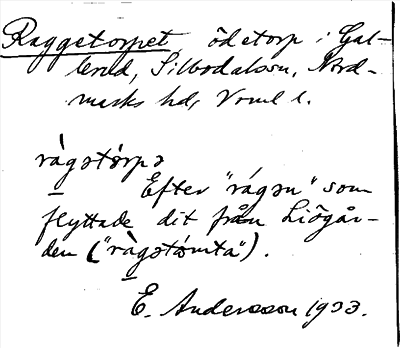 Raggetorpet, ödetorp i Gal-
lerud, Silbodalssn, Nord-
marks hd, Vrml l.
ràgətɷrpə
Efter "rágən" som
flyttade dit från Liögår-
den ("ràgətɷmta").
E. Andersson 1933.